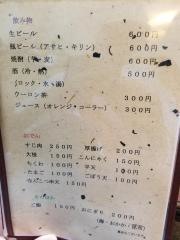 飲み物
生ビール 600円
瓶ビール(アサヒ・キリン) 600円
焼酎(芋・麦) 600円
酒(冷・燗) 500円
(ロック・水・湯)
ウーロン茶 300円
ジュース(オレンジ・コーラー) 300円
おでん
すじ肉 250円 厚揚げ 200円
大根 150円 こんにゃく 150円
ちくわ 150円 平天 150円
たまご 150円 ごぼう天 150円
150円
ご飯 150円 おにぎり 200円